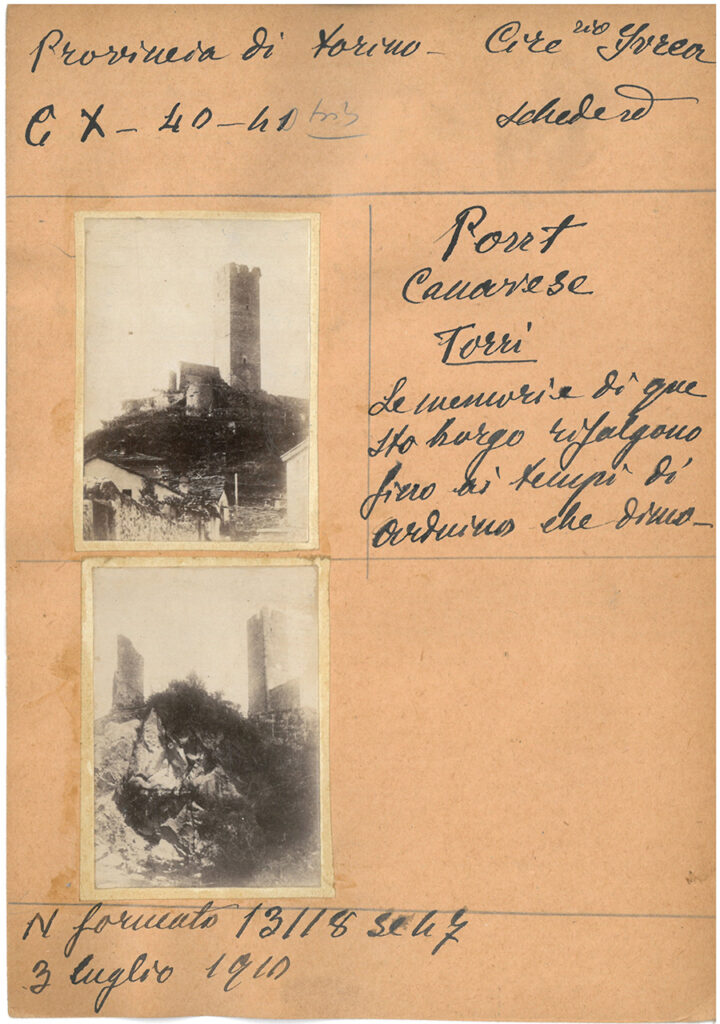 Provincia di Torino - Circ rio Ivrea
C X - 40 - 41 bis
schedered
Pont
Canavese
Torri
Le memorie di que
sto borgo risalgono
fino ai tempi di
Arduino che dimo-
N formato 13/18
3 luglio 1910